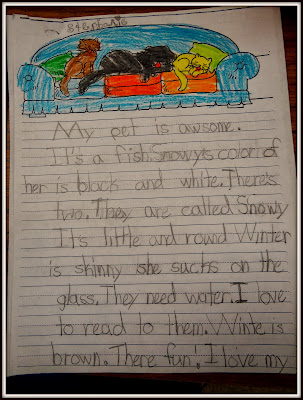 stephanie
My pet is awsome.
It's a fish.Snowy's color of
her is black and white.There's
two.They are called Snowy
It's little and round Winter
is skinny she sucks on the
glass.They need water.I love
to read to them.Winte is
brown.There fun.I love my